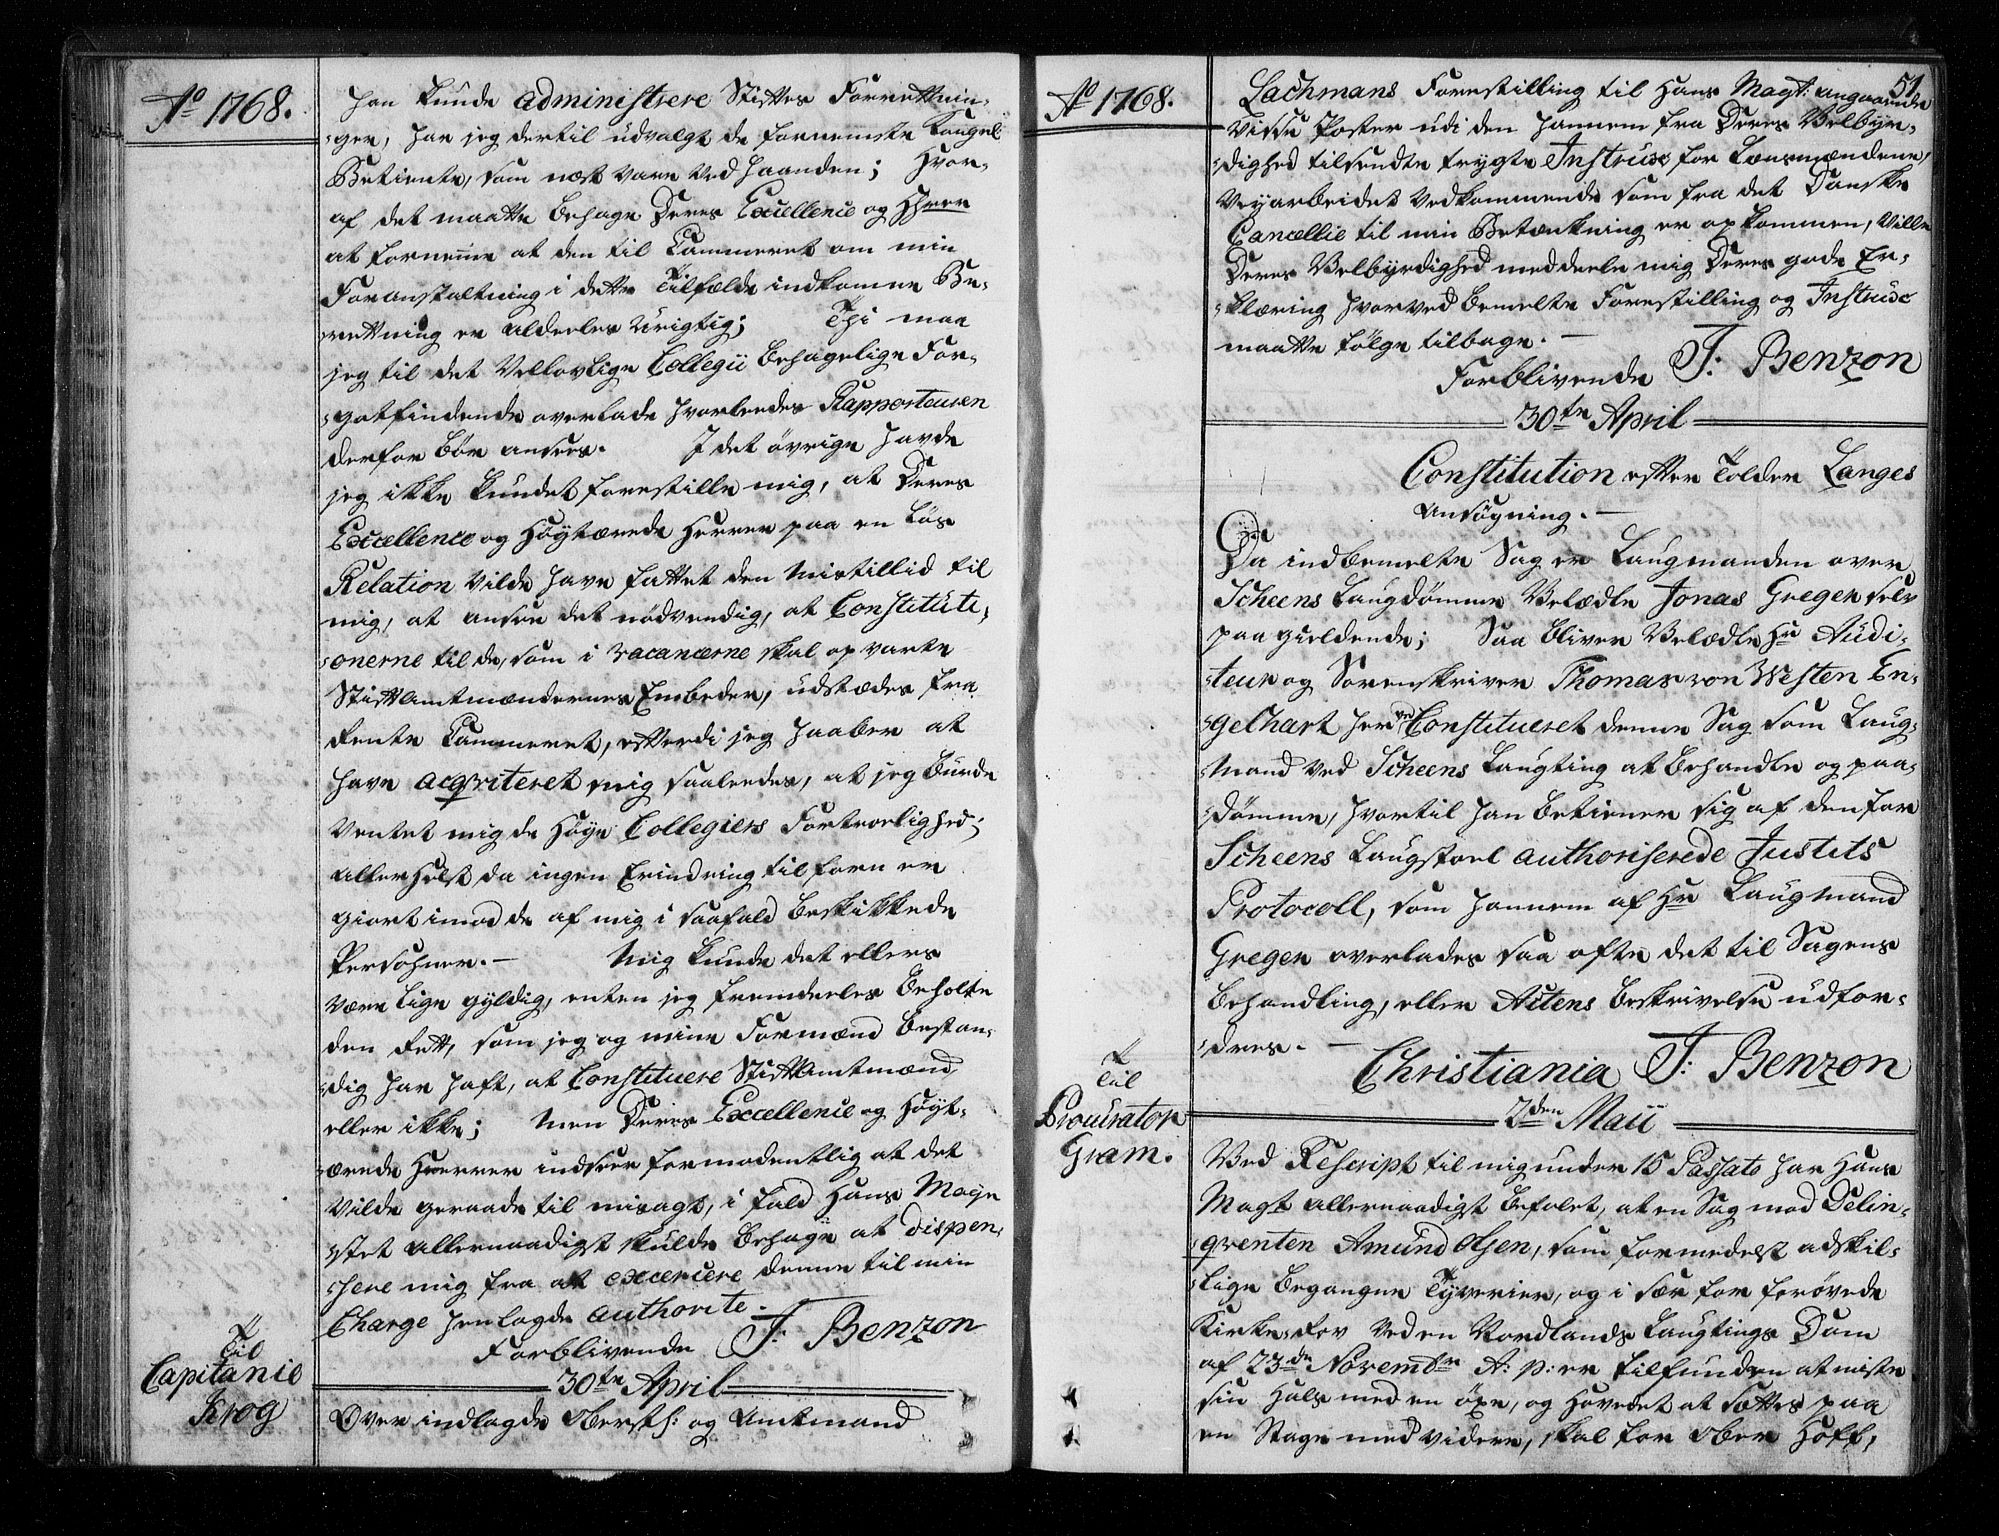 Ao 1768.
han kunde administrere Stiftes Forrettnin-
ger, har jeg dertil udvalgt de fornemste Kongel:
Betiente, som næst vare ved haanden; Hvor-
af det maatte behage Deres Excellence og HHrer
at fornemme at den til Cammeret om min
Foranstaltning i dette Tilfælde indkomne Be-
rettning er alderles urigtig; Thi maa
jeg til det Velloblige Collegii behagelige For-
gotfindende overlade hvorledes Rapporteuren
derfor bør ansees. I det øvrige havde
jeg ikke kundet forestille mig, at Deres
Excellence og Høytærede Herrer paa en løs
Relation vilde have fattet den Mistillid til
mig, at ansee det nødvendig, at Constituti-
onerne til de, som i vacancerne skal opvarte
StiftAmtmændernes Embeder, udstædes fra
Rente Cammeret, efterdi jeg haaber at
have acqviteret mig saaledes, at jeg burde
ventet mig de Høye Collegiers Fortroelighed;
allerhelst da ingen Erindring tilforn er
giort imod de af mig i saafald beskikkede
Persohner. - Mig kunde det ellers
være lige gyldig, enten jeg fremdeeles beholte
den Rett, som jeg og mine Formænd bestan-
dig har haft, at Constituere StiftAmtmænd
eller ikke; Men Deres Excellence og Høyt-
ærede Herrer indseer formodentlig at det
vilde geraade til misagt, i fald Hans Maye-
stet allernaadigst skulde behage at dispen-
sere mig fra at excercere denne til min
Charge henlagde authorite.
Forblivende J: Benzon
30te April
Til
Capitaine
Krog
Over indlagde Oberstl: og Amtmand
Ao 1768.
51
Lachmans Forestilling til Hans Mayt: angaaende
visse Poster udi den hannem fra Deres Velbyr-
dighed tilsendte trygte Instrux for Lænsmændene,
Veyarbeidet vedkommende som fra det Danske
Cancellie til min Betænkning er opkommen, ville
Deres Velbyrdighed meddeele mig Deres gode Er-
klæring hvorved bemelte Forestilling og Instrux
maatte følge tilbage. -
Forblivende J: Benzon
30te April
Constitution efter Tolder Langes
Ansøgning. -
Da indbemelte Sag er Laugmanden over
Scheens Laugdømme Velædle Jonas Greger selv
paagieldende; Saa bliver Velædle Hr Audi-
teur og Sorenskriver Thomas von Westen En-
gelhart herved Constitueret denne Sag som Laug-
Mand ved Scheens Laugting at behandle og paa-
dømme, hvortil han betiener sig af den for
Scheens Laugstoel authoriserede Justits
Protocoll, som hannem af Hr Laugmand
Greger overlades saa ofte det til Sagens
behandling, eller Actens beskrivelse udfor-
dres. -
Christiania J: Benzon
2den Maii
Til
Procurator
Gram.
Ved Rescript til mig under 15 Passato har Hans
Mayt allernaadigst befalet, at en Sag mod Delin-
qventen Amund Olsen, som formedelst adskil-
lige begangne Tyverier, og i sær for forøvede
Kirke-Rov ved en Nordlands Laugtings Dom
af 23de Novembr A: p: er tilfunden at miste
sin Hals med en øxe, og Hovedet at sættes paa
en Stage med videre, skal for Ober Hoff,